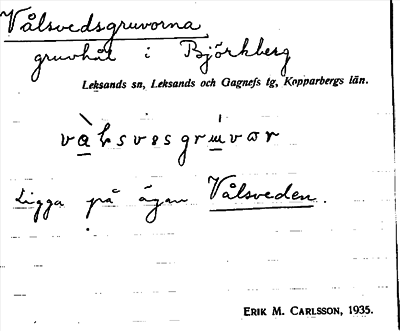 Vålsvedsgruvorna,
gruvhål i Björkberg
Leksands sn, Leksands och Gagnefs tg, Kopparbergs län.
Ligga på ägan Vålsveden.
ERIK M. CARLSSON, 1935.